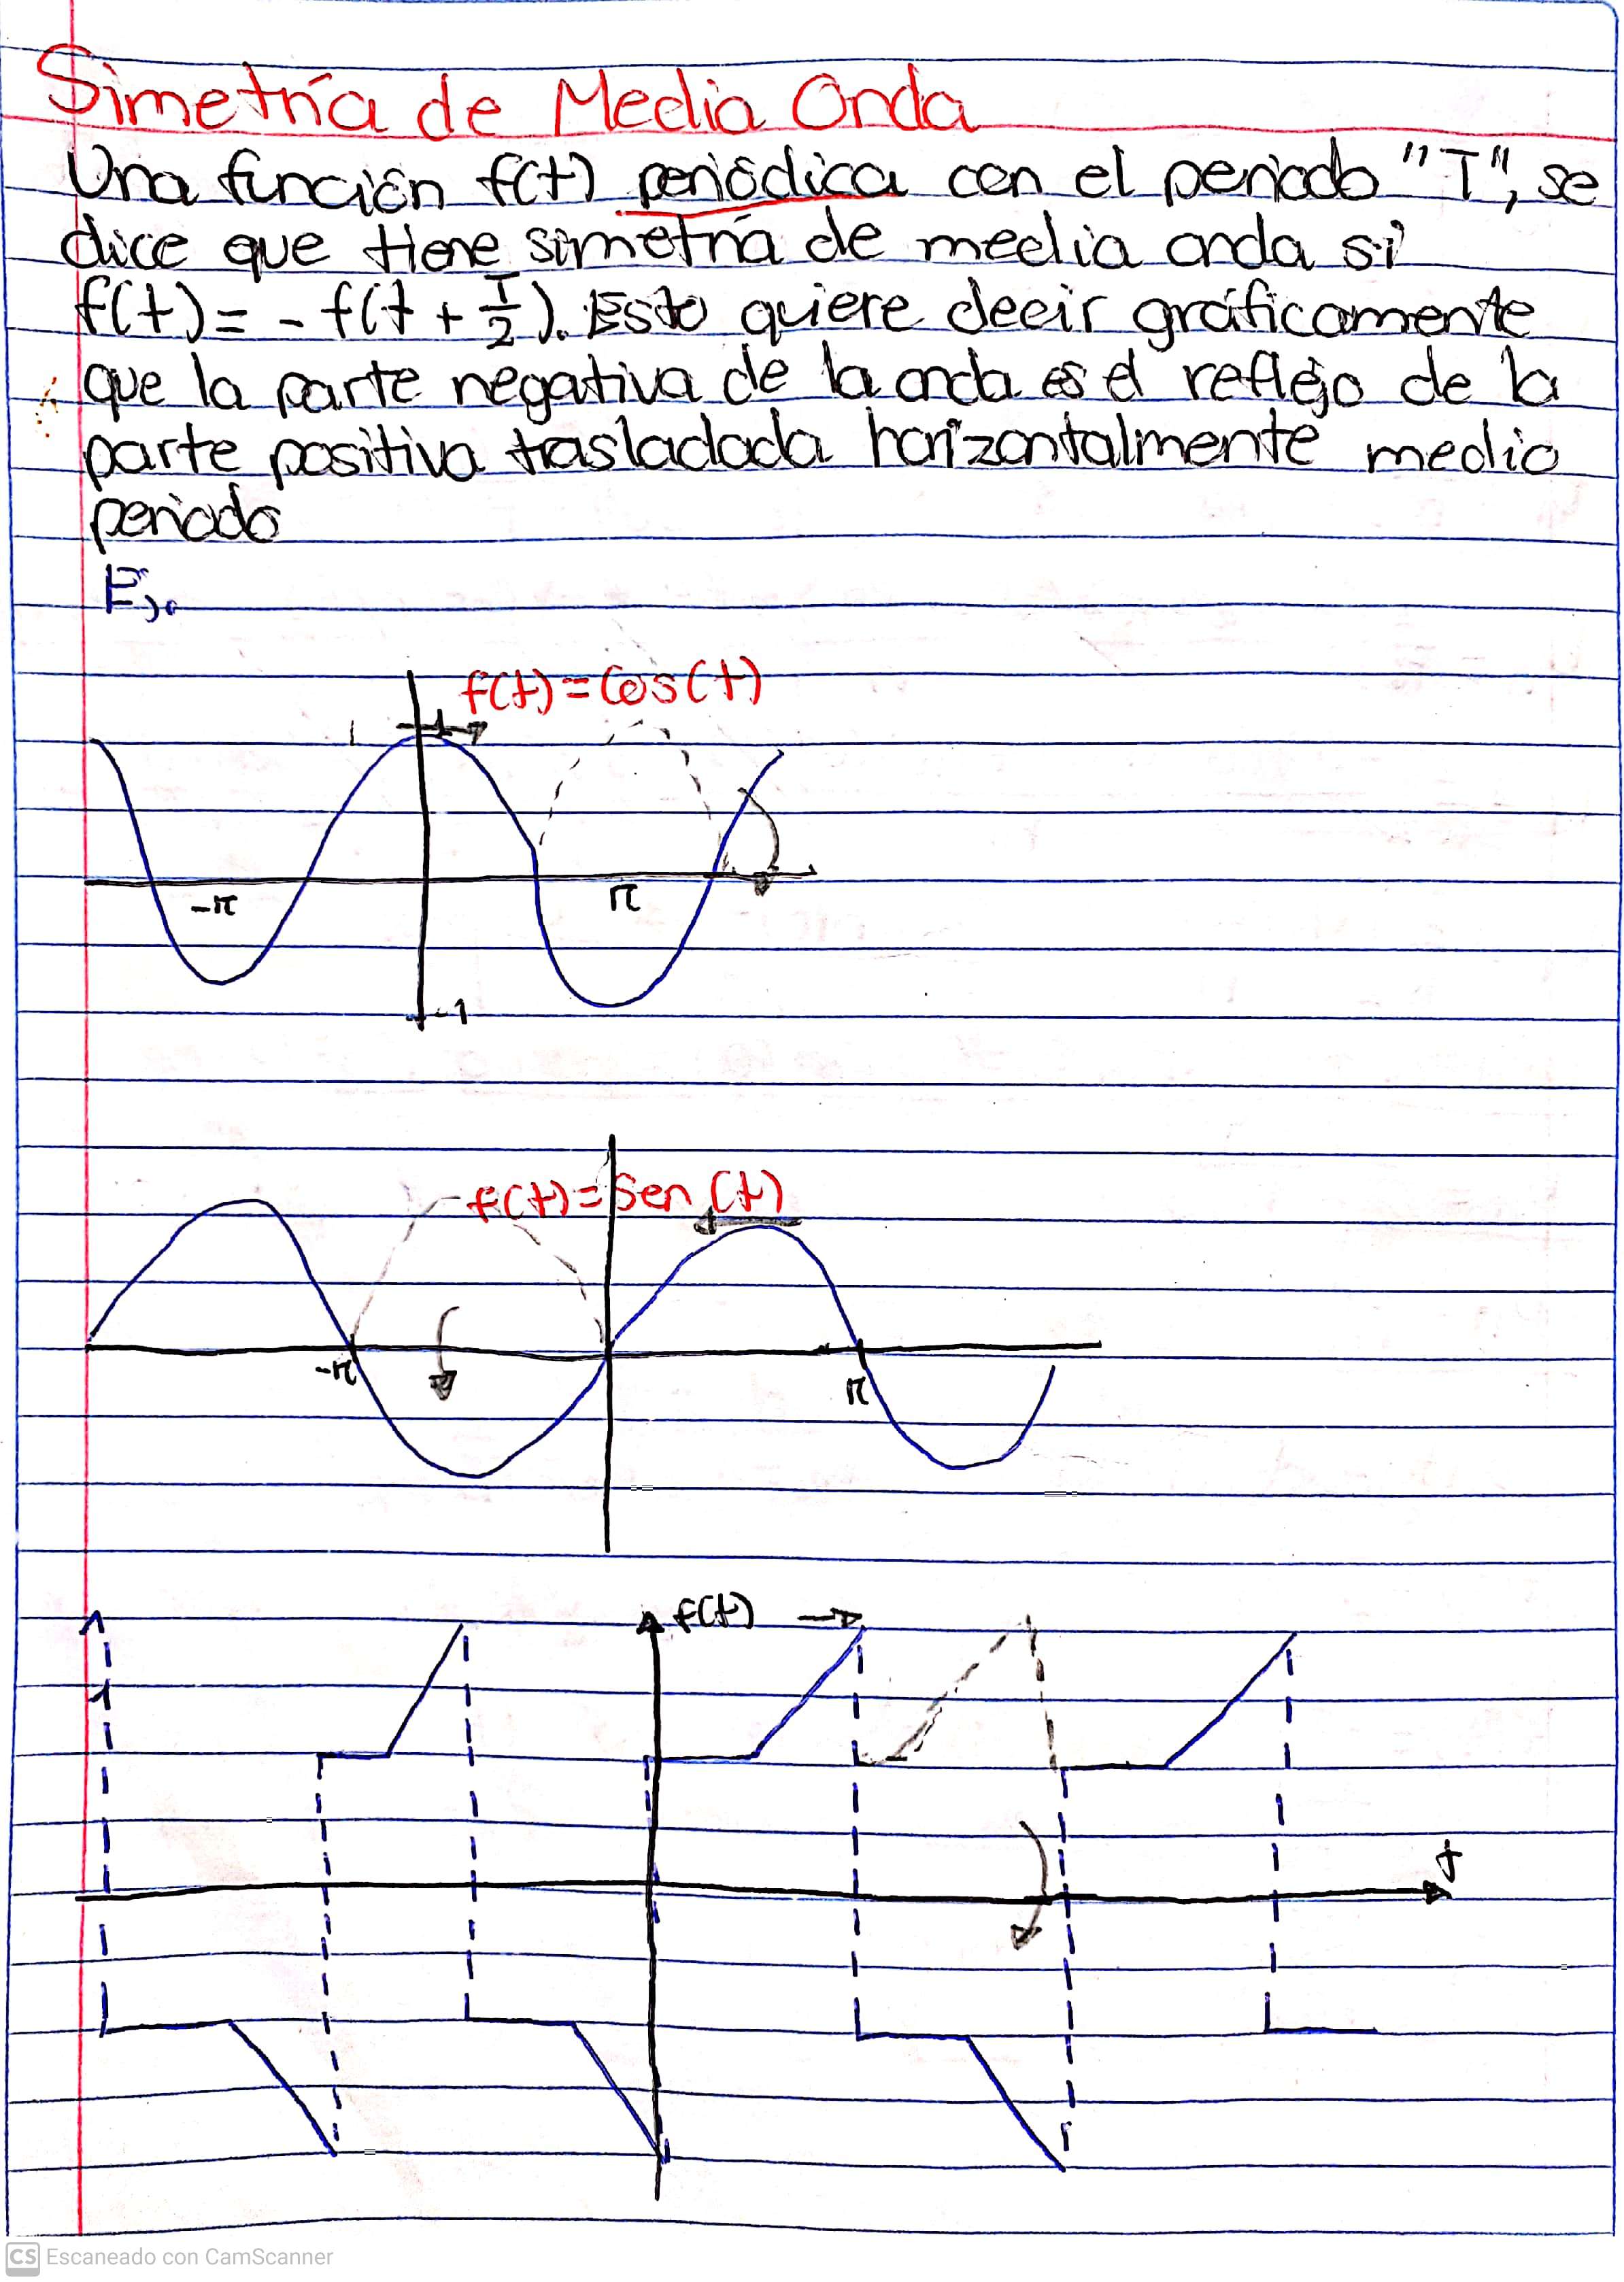 Simetría de Media Onda
Una función f(t) periódica con el periodo "T", se
dice que tiene simetría de media onda si
f(t) = - f(t + T/2). Esto quiere decir gráficamente
que la parte negativa de la onda es el reflejo de la
parte positiva trasladada horizontalmente medio
periodo
Ej.
f(t) = Cos(t)
1
-π
π
-1
f(t) = Sen(t)
-π
π
f(t)
t
CS Escaneado con CamScanner